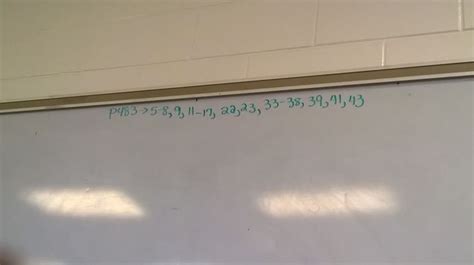 p483 > 5-8, 9, 11-17, 22, 23, 33-38, 39, 41, 43